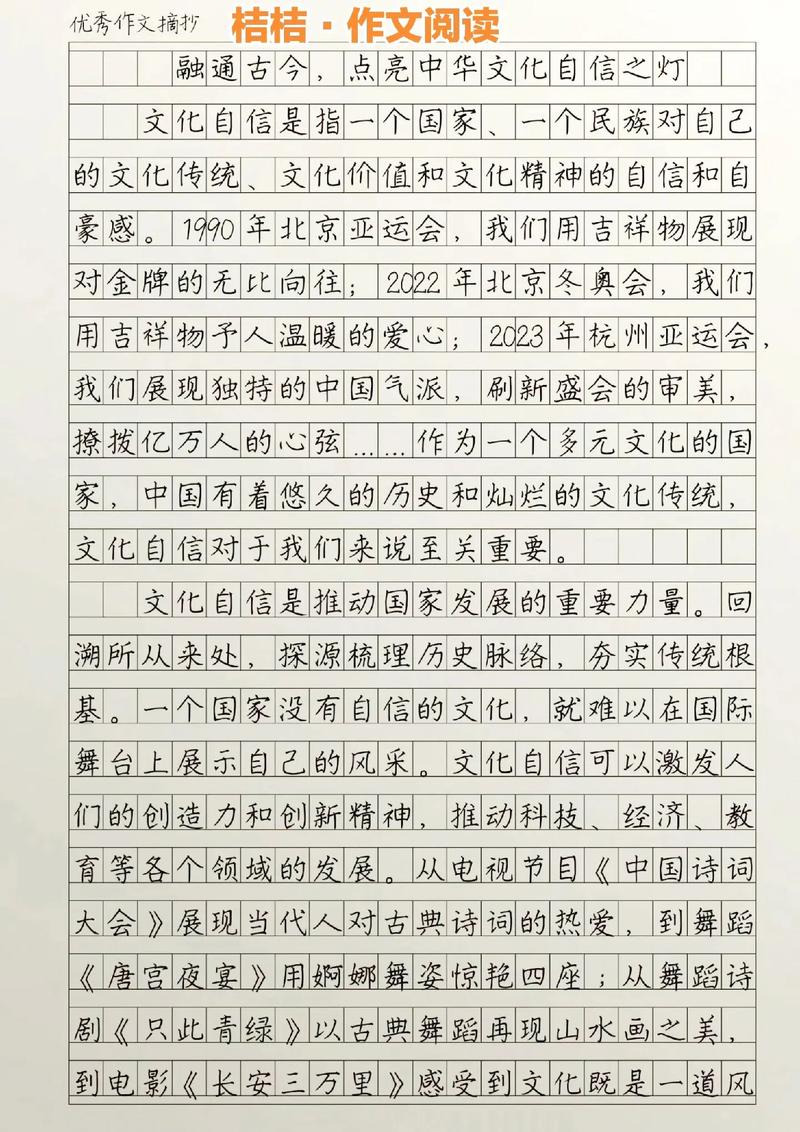 优秀作文摘抄
桔桔·作文阅读
融通古今，点亮中华文化自信之灯
文化自信是指一个国家、一个民族对自己
的文化传统、文化价值和文化精神的自信和自
豪感。1990年北京亚运会，我们用吉祥物展现
对金牌的无比向往；2022年北京冬奥会，我们
用吉祥物予人温暖的爱心；2023年杭州亚运会，
我们展现独特的中国气派，刷新盛会的审美，
撩拨亿万人的心弦……作为一个多元文化的国
家，中国有着悠久的历史和灿烂的文化传统，
文化自信对于我们来说至关重要。
文化自信是推动国家发展的重要力量。回
溯所从来处，探源梳理历史脉络，夯实传统根
基。一个国家没有自信的文化，就难以在国际
舞台上展示自己的风采。文化自信可以激发人
们的创造力和创新精神，推动科技、经济、教
育等各个领域的发展。从电视节目《中国诗词
大会》展现当代人对古典诗词的热爱，到舞蹈
《唐宫夜宴》用婀娜舞姿惊艳四座；从舞蹈诗
剧《只此青绿》以古典舞蹈再现山水画之美，
到电影《长安三万里》感受到文化既是一道风